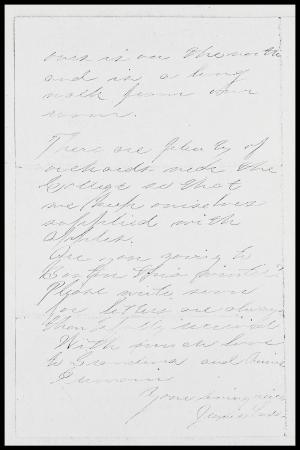 ours is on the north
and is a long
walk from our
room.
There are plenty of
orchards near the
College so that
we keep ourselves
supplied with
apples.
Are you going to
Boston this winter?
Please write soon
for letters are always
thankfully received
With much love
to Grandma and
Your loving niece
Jennie